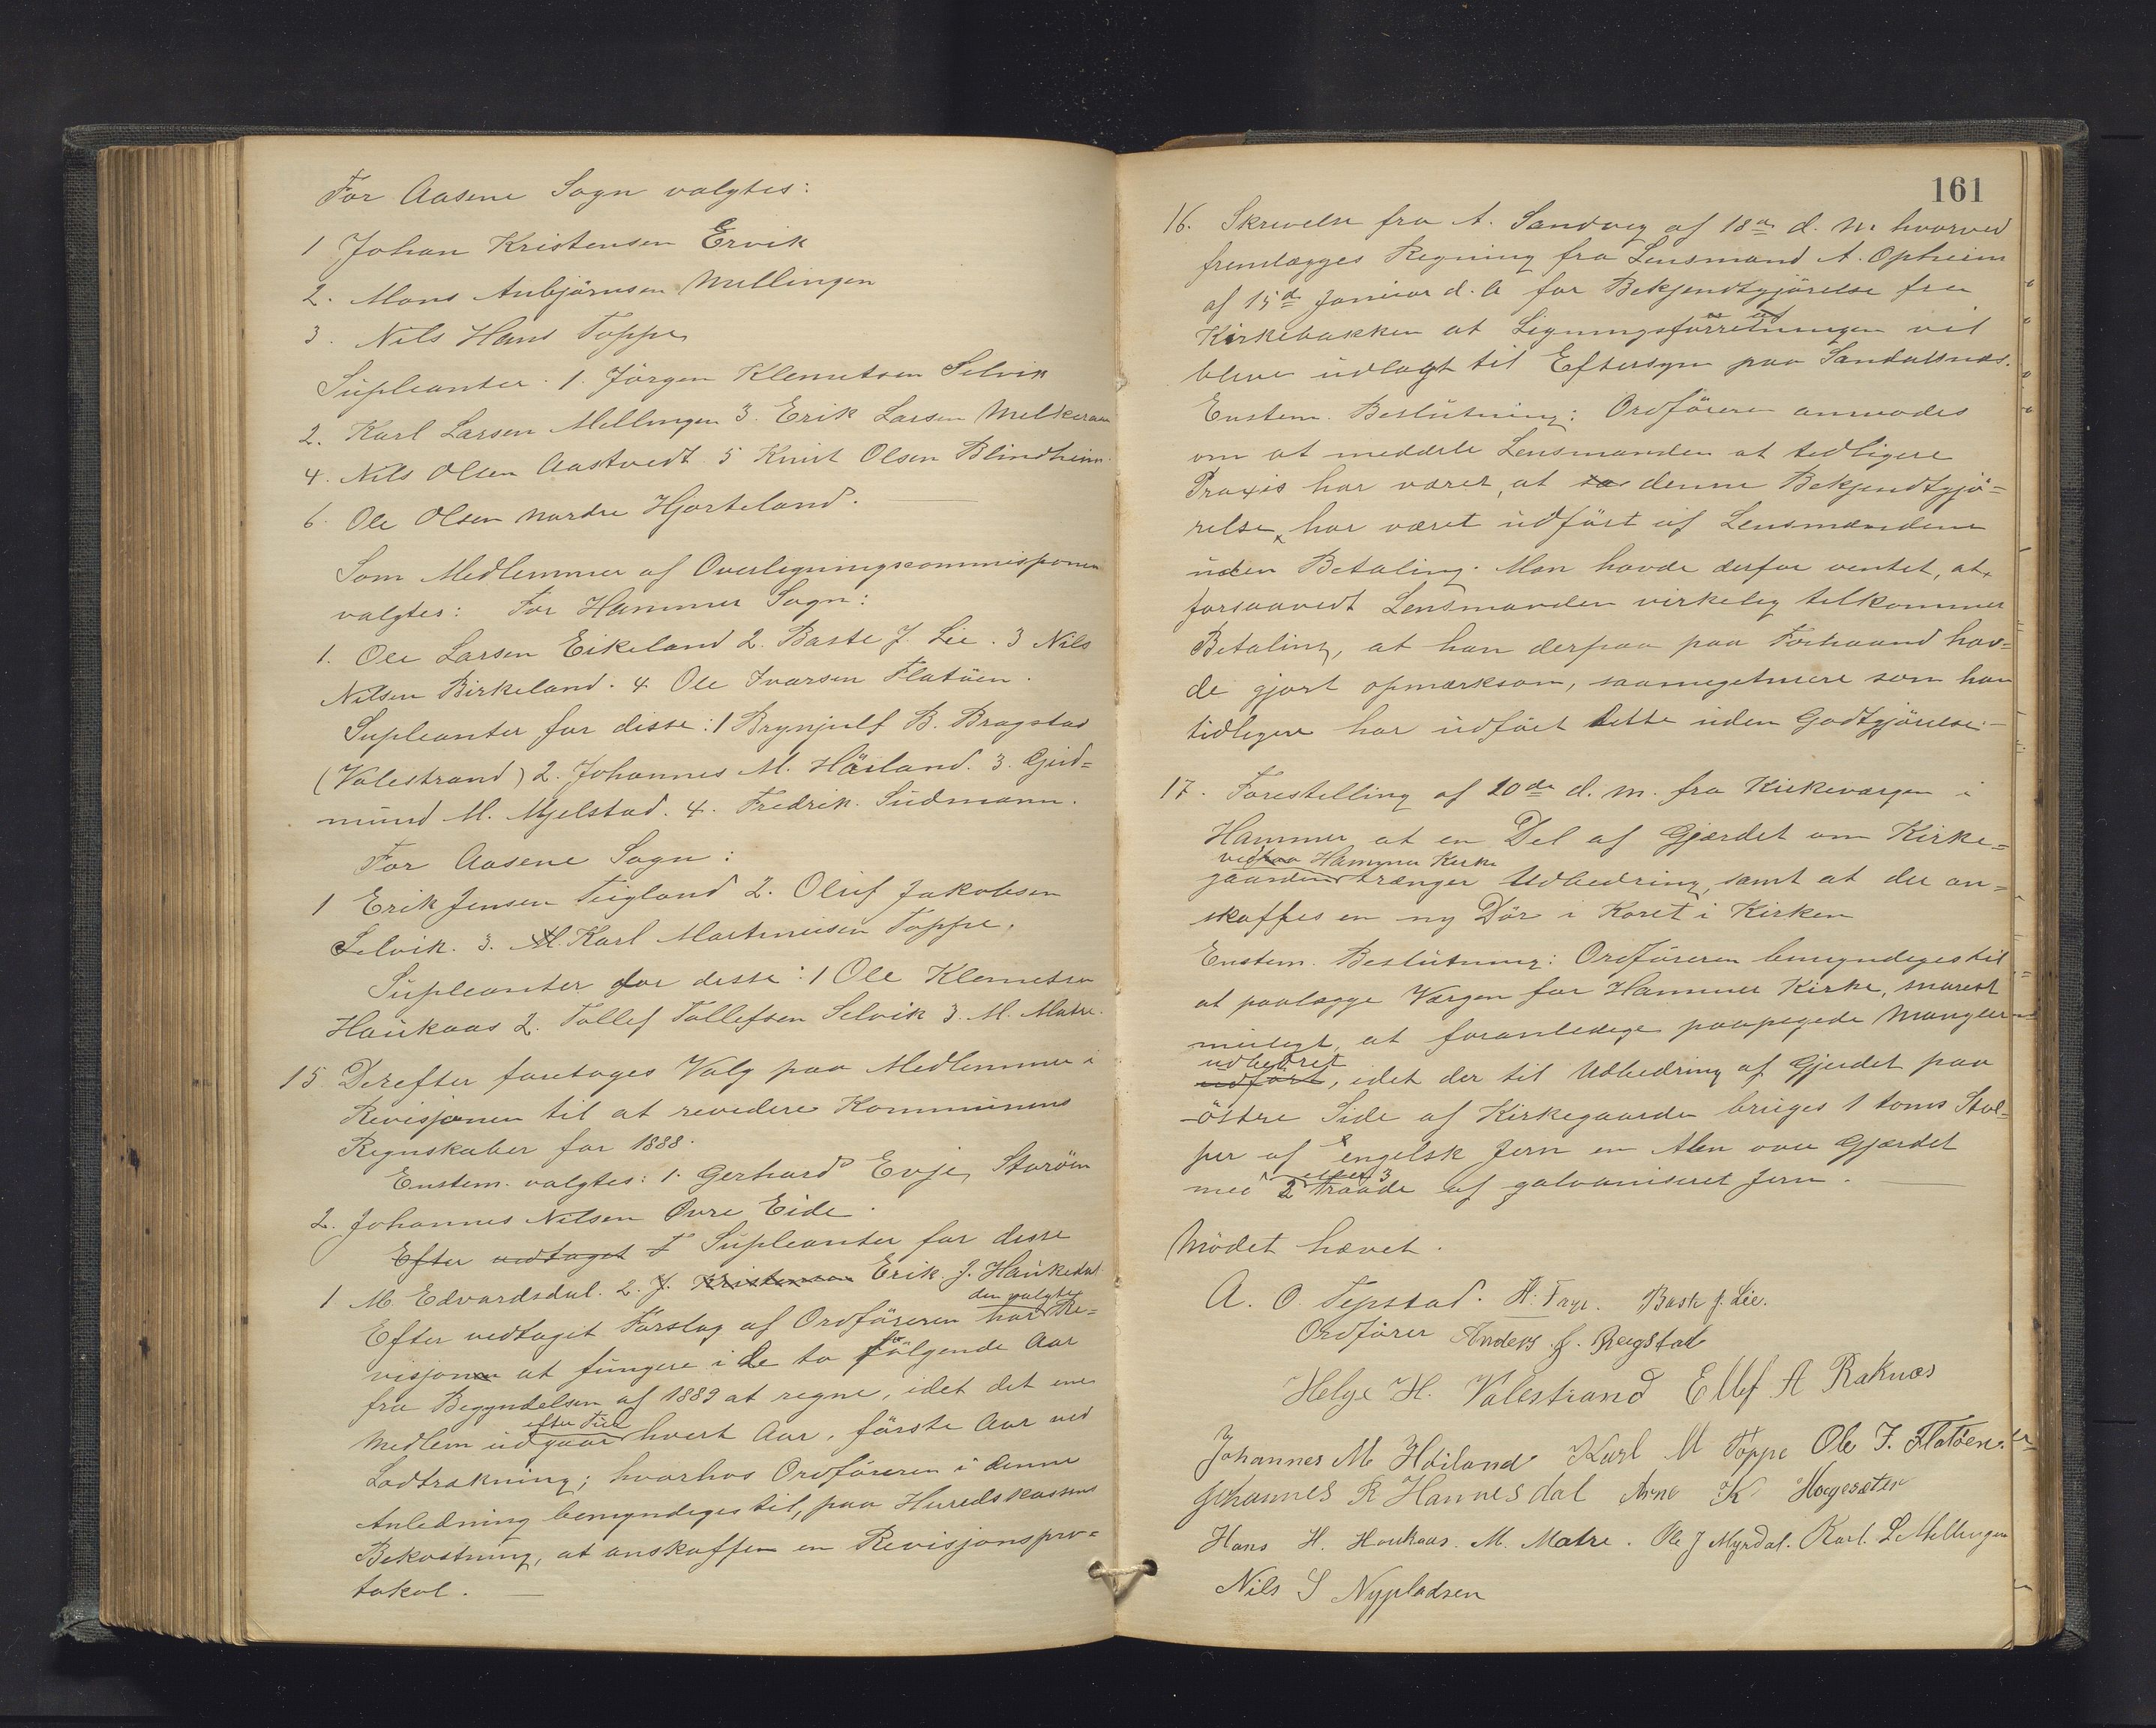 For Aasene Sogn valgtes:
1 Johan Kristensen Ervik
2. Mons Anbjörnsen Mellingen
3. Nils Hans Toppe
Supleanter. 1. Jörgen Klemetsen Selvik
2. Karl Larsen Mellingen 3. Erik Larsen Melkeraaen
4. Nils Olsen Aastvedt 5 Knut Olsen Blindheim.
6. Ole Olsen nordre Hjorteland.
Som Medlemmer af Overligningscommissionen
valgtes: For Hammer Sogn:
1. Ole Larsen Eikeland 2. Baste J. Lie. 3 Nils
Nilsen Birkeland. 4 Ole Ivarsen Flatöen.
Supleanter for disse: 1 Brynjulf B. Brogstad
(Valestrand) 2. Johannes M. Höiland. 3. Gjud=
mund M. Mjelstad. 4. Fredrik Sudmann.
For Aasene Sogn:
1 Erik Jensen Teigland 2. Oluf Jakobsen
Selvik. 3. M. Karl Martinusen Toppe.
Supleanter for disse: 1 Ole Klemetsen
Haukaas 2. Tollef Tollefsen Selvik 3. M. Matre.
15 Derefter foretoges Valg paa Medlemmer i
Revisjonen til at revedere Kommunens
Regnskaber for 1888.
Enstem. valgtes: 1. Gerhard Evje, Storöen
2. Johannes Nilsen Övre Eide.
Efter vedtaget F Supleanter for disse
1 M. Edvardsdal. 2. J. Kristensen Erik J. Haukedal
den valgte
Efter vedtaget Forslag af Ordföreren har Re=
visjonen at fungere i de to fölgende Aar
fra Begyndelsen af 1889 at regne, idet det ene
efter Tur
Medlem udgaar hvert Aar, förste Aar ved
Lodtrækning; hvorhos Ordföreren i denne
Anledning bemyndiges til, paa Heredskassens
Bekostning, at anskaffe en Revisjonspro=
tokol.
161
16. Skrivelse fra A. Sandvig af 18de d. M. hvorved
fremlægges Regning fra Lensmand A. Opheim
af 15de Januar d. A for Bekjendtgjörelse fra
Kirkebakken at Ligningsforretningen vil
blive udlagt til Eftersyn paa Sandalsnæs.
Enstem. Beslutning: Ordföreren anmodes
om at meddele Lensmanden at tidligere
Praxis har været, at saa denne Bekjendtgjö=
relse har været udfört af Lensmændene
uden Betaling. Man havde derfor ventet, at,
forsaavidt Lensmanden virkelig tilkommer
Betaling, at han derpaa paa Forhaand hav=
de gjort opmærksom, saameget mere som han
tidligere har udfört dette uden Godtgjörelse.
17. Forestelling af 20de d. M. fra Kirkeværgen i
Hammer at en Del af Gjærdet om Kirke=
ved Hammer Kirke
gaarden trænger Udbedring, samt at der an=
skaffes en ny Dör i Koret i Kirken
Enstem. Beslutning: Ordföreren bemyndiges til
at paalægge Værgen for Hammer Kirke, snarest
muligt, at foranledige paapegede Mangler
udbedret
udfört, idet der til Udbedring af Gjerdet paa
östre Side af Kirkegaarden bruges 1 toms Stol=
per af engelsk Jern en Alen over Gjærdet
eller 3
med 2 Traade af galvaniseret Jern.
Mödet hævet.
A. O. Tepstad. H. Frye. Baste J. Lie.
Ordförer Anders J. Bragstad
Helge H. Valestrand Ellef A Raknæs
Johannes M Höiland Karl M Toppe Ole I. Flatöen.
Johannes R Hannesdal Arne K Hogesæter
Hans H. Houkaas. M. Matre. Ole J Myrdal. Karl. L. Mellingen
Nils S Nypladsen